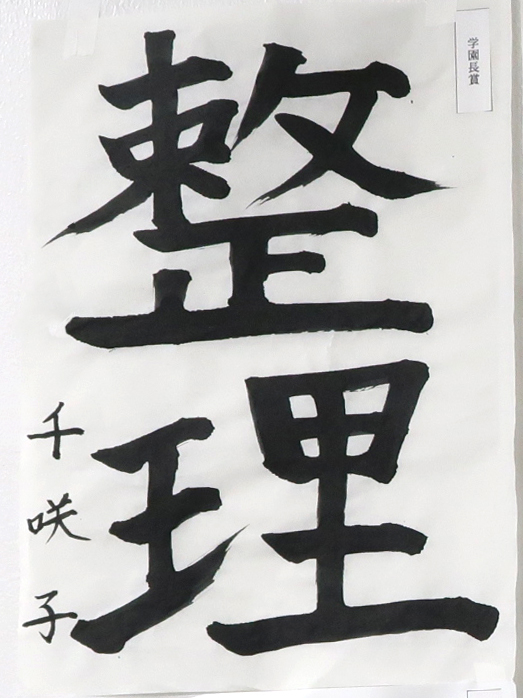 学園長賞
整理
千咲子